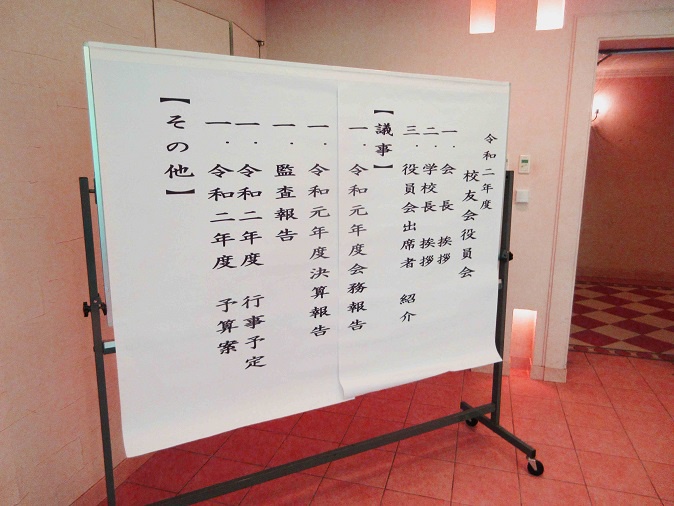 令和二年度
校友会役員会
一．会　長　挨拶
二．学校長　挨拶
三．役員会出席者　紹介
【議事】
一．令和元年度会務報告
一．令和元年度決算報告
一．監査報告
一．令和二年度　行事予定
一．令和二年度　予算案
【その他】